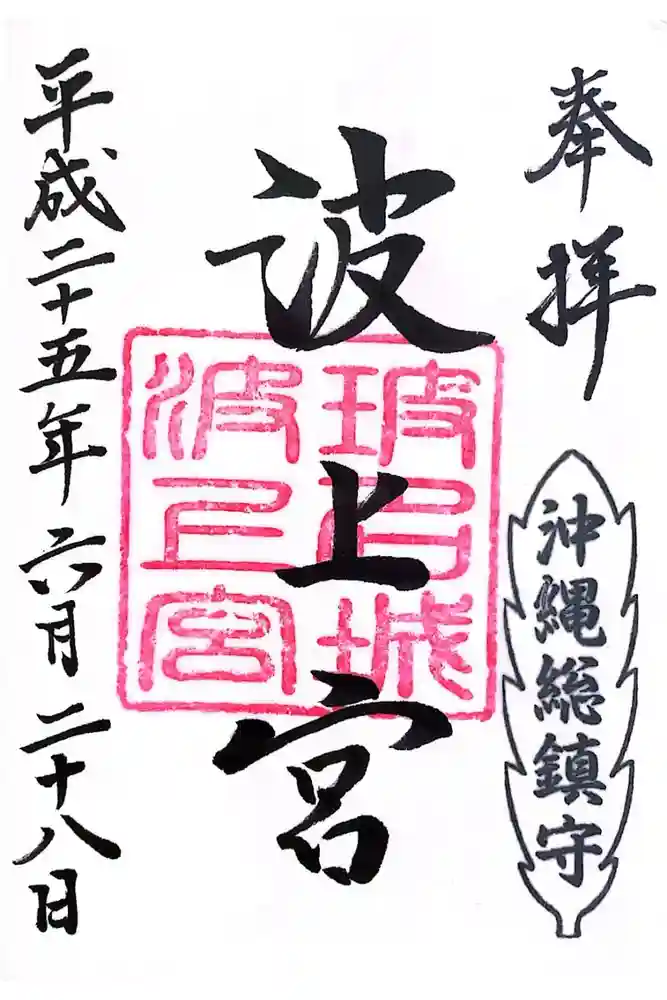 奉拝
沖縄総鎮守
波上宮
玻名城
波上宮
平成二十五年六月二十八日